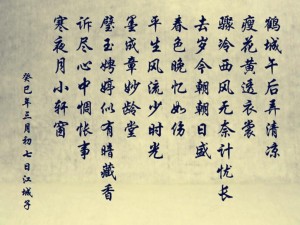 鹤城午后弄清凉
瘦花黄透衣裳
骤冷西风无奈计忧长
去岁今朝朝日盛
春色晚忆如伤
平生风流少时光
墨成章妙龄堂
璧玉娉婷似有暗藏香
诉尽心中惆怅事
寒夜月小轩窗
癸巳年三月初七日江城子